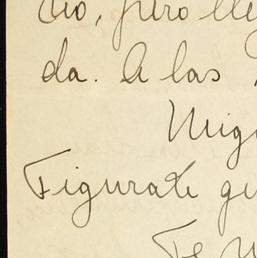 dio, pero lle
da. A las
Mig
Figurate qu
Te